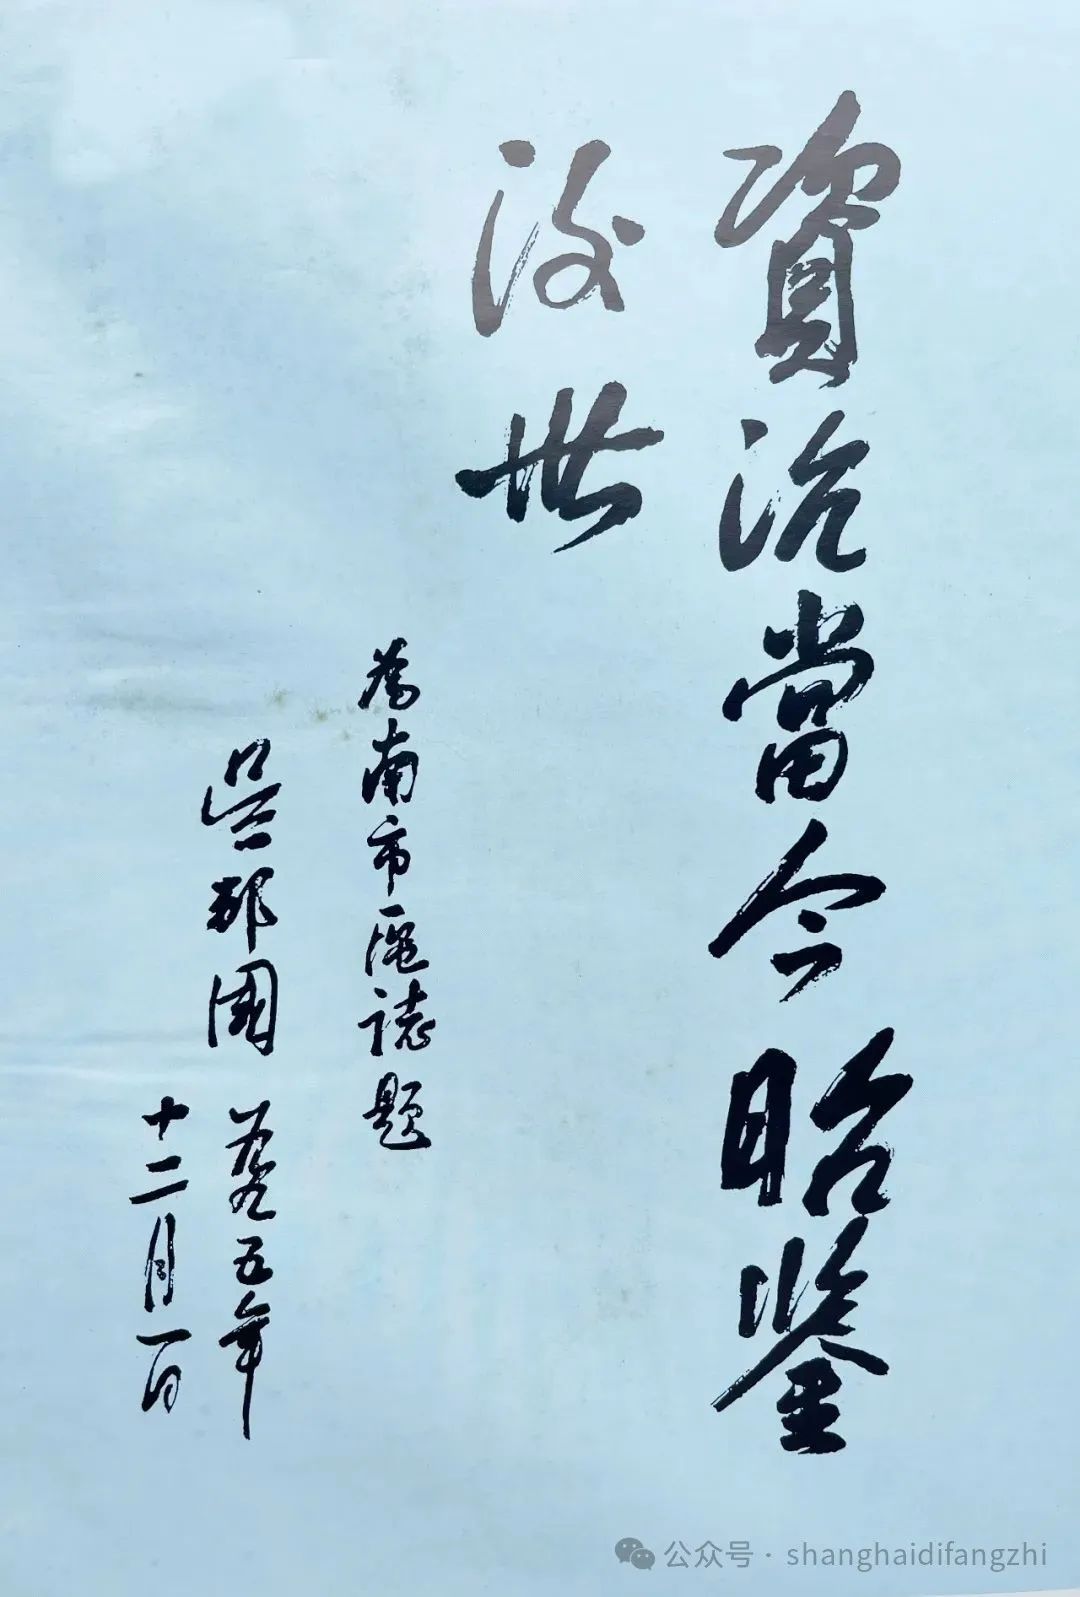 資治當今昭鑒
後世
為南市區誌題
吴邦國 一九九五年
十二月一日
公众号 · shanghaidifangzhi